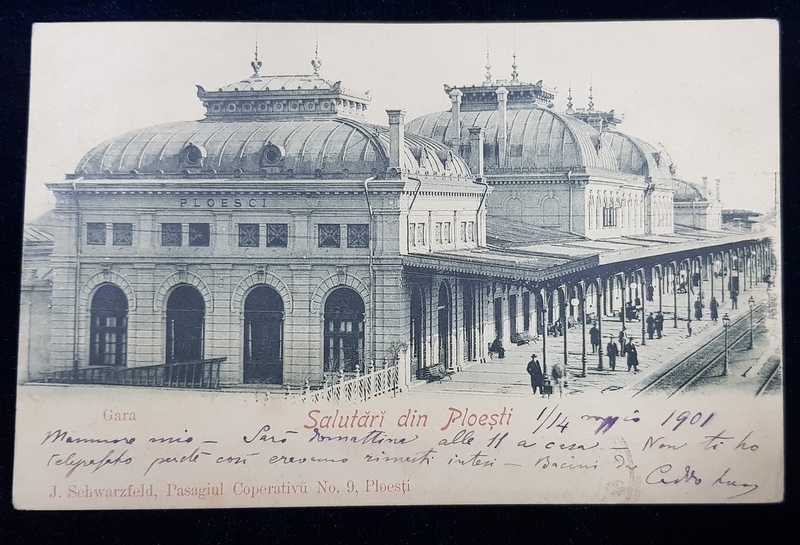 PLOESCI
Gara
Salutări din Ploeşti
1/14 maggio 1901
mio – Sarò domattina alle 11 a casa – Non ti ho
telegrafato perché così eravamo rimasti intesi – Bacini da
J. Schwarzfeld, Pasagiul Cooperativŭ No. 9, Ploeşti